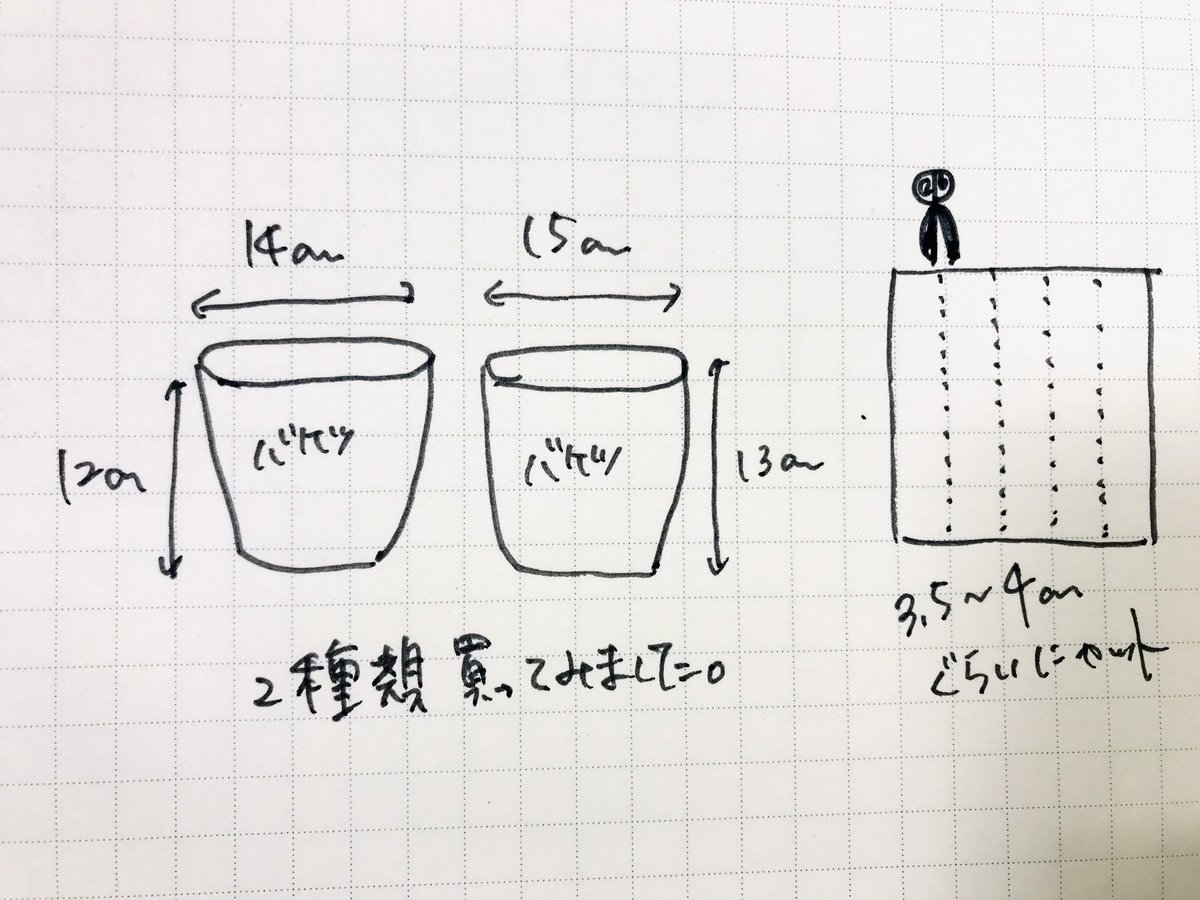 14cm
15cm
12cm
バケツ
バケツ
13cm
2種類買ってみました。
3.5〜4cm
ぐらいにカット